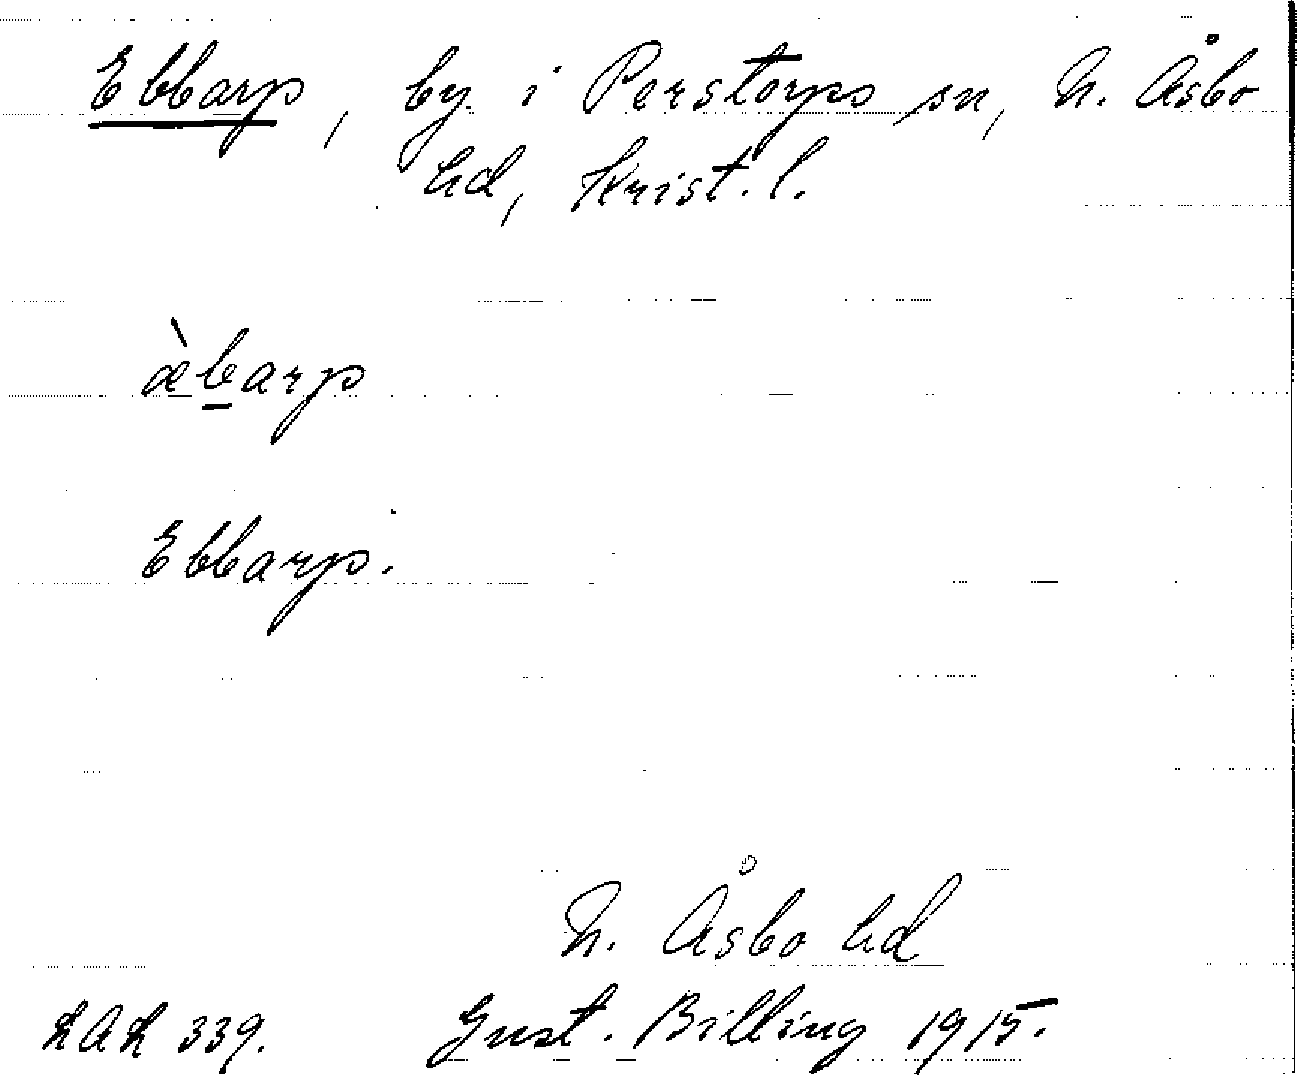 Ebbarp, by i Perstorps sn, N. Åsbo
hd, Krist. l.
æ̀b̲arp
Ebbarp.
N. Åsbo hd
LAL 339. Gust. Billing 1915.